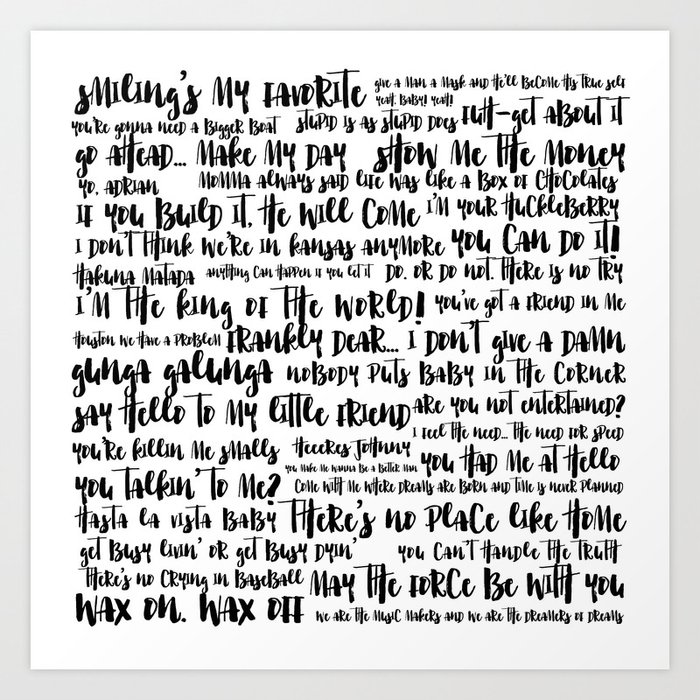 SMILING'S MY FAVORITE
GIVE A MAN A MASK AND HE'LL BECOME HIS TRUE SELF
YEAH, BABY! YEAH!
YOU'RE GONNA NEED A BIGGER BOAT
STUPID IS AS STUPID DOES
FUH-GET ABOUT IT
GO AHEAD... MAKE MY DAY
SHOW ME THE MONEY
YO, ADRIAN
MOMMA ALWAYS SAID LIFE WAS LIKE A BOX OF CHOCOLATES
IF YOU BUILD IT, HE WILL COME
I'M YOUR HUCKLEBERRY
I DON'T THINK WE'RE IN KANSAS ANYMORE
YOU CAN DO IT!
HAKUNA MATADA
ANYTHING CAN HAPPEN IF YOU LET IT
DO. OR DO NOT. THERE IS NO TRY
I'M THE KING OF THE WORLD!
YOU'VE GOT A FRIEND IN ME
HOUSTON WE HAVE A PROBLEM
FRANKLY DEAR... I DON'T GIVE A DAMN
GUNGA GALUNGA
NOBODY PUTS BABY IN THE CORNER
SAY HELLO TO MY LITTLE FRIEND
ARE YOU NOT ENTERTAINED?
I FEEL THE NEED... THE NEED FOR SPEED
YOU'RE KILLIN ME SMALLS
HEEERES JOHNNY
YOU MAKE ME WANNA BE A BETTER MAN
YOU HAD ME AT HELLO
YOU TALKIN' TO ME?
COME WITH ME WHERE DREAMS ARE BORN AND TIME IS NEVER PLANNED
HASTA LA VISTA BABY
THERE'S NO PLACE LIKE HOME
GET BUSY LIVIN' OR GET BUSY DYIN'
YOU CAN'T HANDLE THE TRUTH
THERE'S NO CRYING IN BASEBALL
MAY THE FORCE BE WITH YOU
WAX ON. WAX OFF
WE ARE THE MUSIC MAKERS AND WE ARE THE DREAMERS OF DREAMS